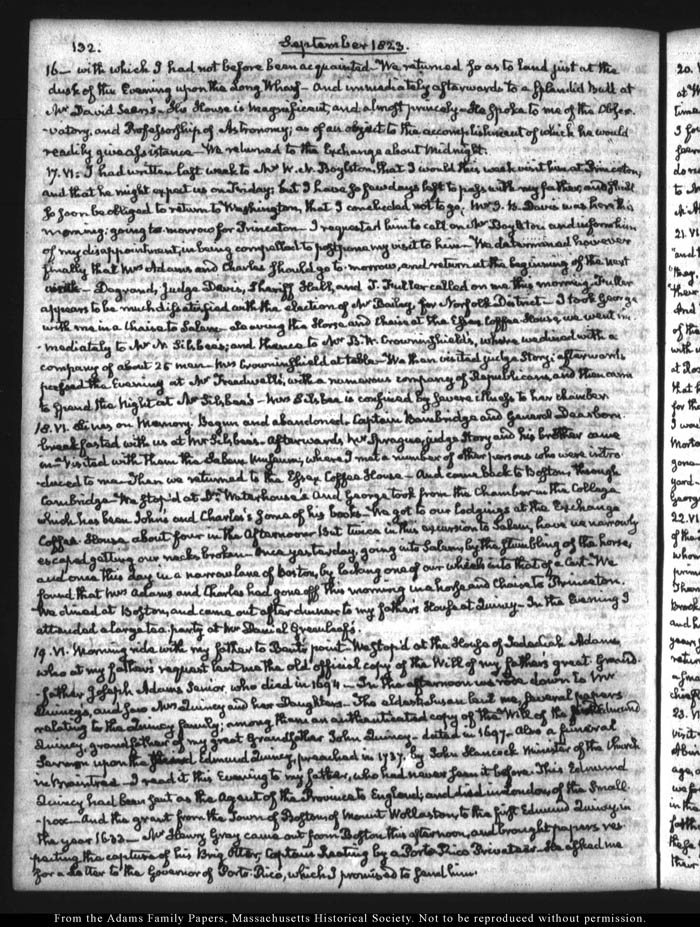 132. September 1823.
16— with which I had not before been acquainted— We returned so as to land just at the
dusk of the Evening upon the Long Wharf— And immediately afterwards to a splendid Ball at
Mr David Sears's— His House is magnificent, and almost princely— He spoke to me of the Obser-
-vatory, and Professorship of Astronomy; as of an object to the accomplishment of which he would
readily give assistance— We returned to the Exchange about Midnight.
17. VI: I had written last week to Mr W. N. Boylston, that I would this week visit him at Princeton,
and that he might expect us on Friday; but I have so few days left to pass with my father, and shall
so soon be obliged to return to Washington, that I concluded not to go. Mr I. P. Davis was here this
morning; going tomorrow for Princeton— I requested him to call on Mr Boylston and inform him
of my disappointment, in being compelled to postpone my visit to him— We determined however
finally that Mrs Adams and Charles should go to-morrow, and return at the beginning of the next
week— Degrand, Judge Davis, Sheriff Hall, and T. Fuller called on me this morning. Fuller
appears to be much dissatisfied with the election of Mr Bailey, for Norfolk District— I took George
with me in a Chaise to Salem— leaving the Horse and Chaise at the Essex Coffee House, we went im-
-mediately to Mr N. Silsbee's; and thence to Mr B. W. Crowninshield's, where we dined with a
company of about 25 men— Mrs Crowninshield at table— We then visited judge Story; afterwards
passed the Evening at Mr Treadwell's, with a numerous company of Republicans, and then came
to spend the Night at Mr Silsbee's— Mrs Silsbee is confined by severe illness to her chamber.
18. VI. Lines on Memory. Begun and abandoned. Captain Bainbridge and General Dearborn
breakfasted with us at Mr Silsbee's— Afterwards Mr Sprague, judge Story and his brother came
in— Visited with them the Salem Museum, where I met a number of other persons who were intro-
-duced to me— Then we returned to the Essex Coffee House— And came back to Boston, through
Cambridge— We stop'd at Dr Waterhouse's And George took from the Chamber in the College
which has been John's and Charles's some of his books— We got to our lodgings at the Exchange
Coffee-House about four in the Afternoon But twice in this excursion to Salem, have we narrowly
escaped getting our necks broken— Once yesterday going into Salem, by the stumbling of the horse,
and once this day in a narrow lane of Boston, by locking one of our wheels into that of a Cart— We
found that Mrs Adams and Charles had gone off this morning in a horse and Chaise to Princeton.
We dined at Boston, and came out after dinner, to my father's House at Quincy— In the Evening I
attended a large tea party at Mr Daniel Greenleaf's.
19. VI. Morning ride with my father to Bent's point— We stop'd at the House of Jedediah Adams,
who at my father's request lent me the old official copy of the Will of my father's great Grand-
-father Joseph Adams Senior who died in 1694— In the afternoon we rode down to Mr
Quincy's, and saw Mrs Quincy and her Daughters— The elder Susan lent me, several papers
relating to the Quincy family; among them an authenticated copy of the Will of the Edmund
Quincy, grandfather of my great Grandfather John Quincy— dated in 1697— Also a funeral
Sermon upon the Edmund Quincy, preached in 1737. by John Hancock Minister of the Church
in Braintree— I read it this Evening to my father, who had never seen it before— This Edmund
Quincy had been sent as the Agent of the Province to England, and died in London, of the Small-
-pox— And the grant from the Town of Boston of Mount Wollaston, to the first Edmund Quincy, in
the year 1633— Mr Henry Gray came out from Boston this afternoon, and brought papers res-
pecting the capture of his Brig Otter, Captain by a Porto Rico Privateer— He asked me
for a Letter to the Governor of Porto-Rico, which I promised to send him.
From the Adams Family Papers, Massachusetts Historical Society. Not to be reproduced without permission.